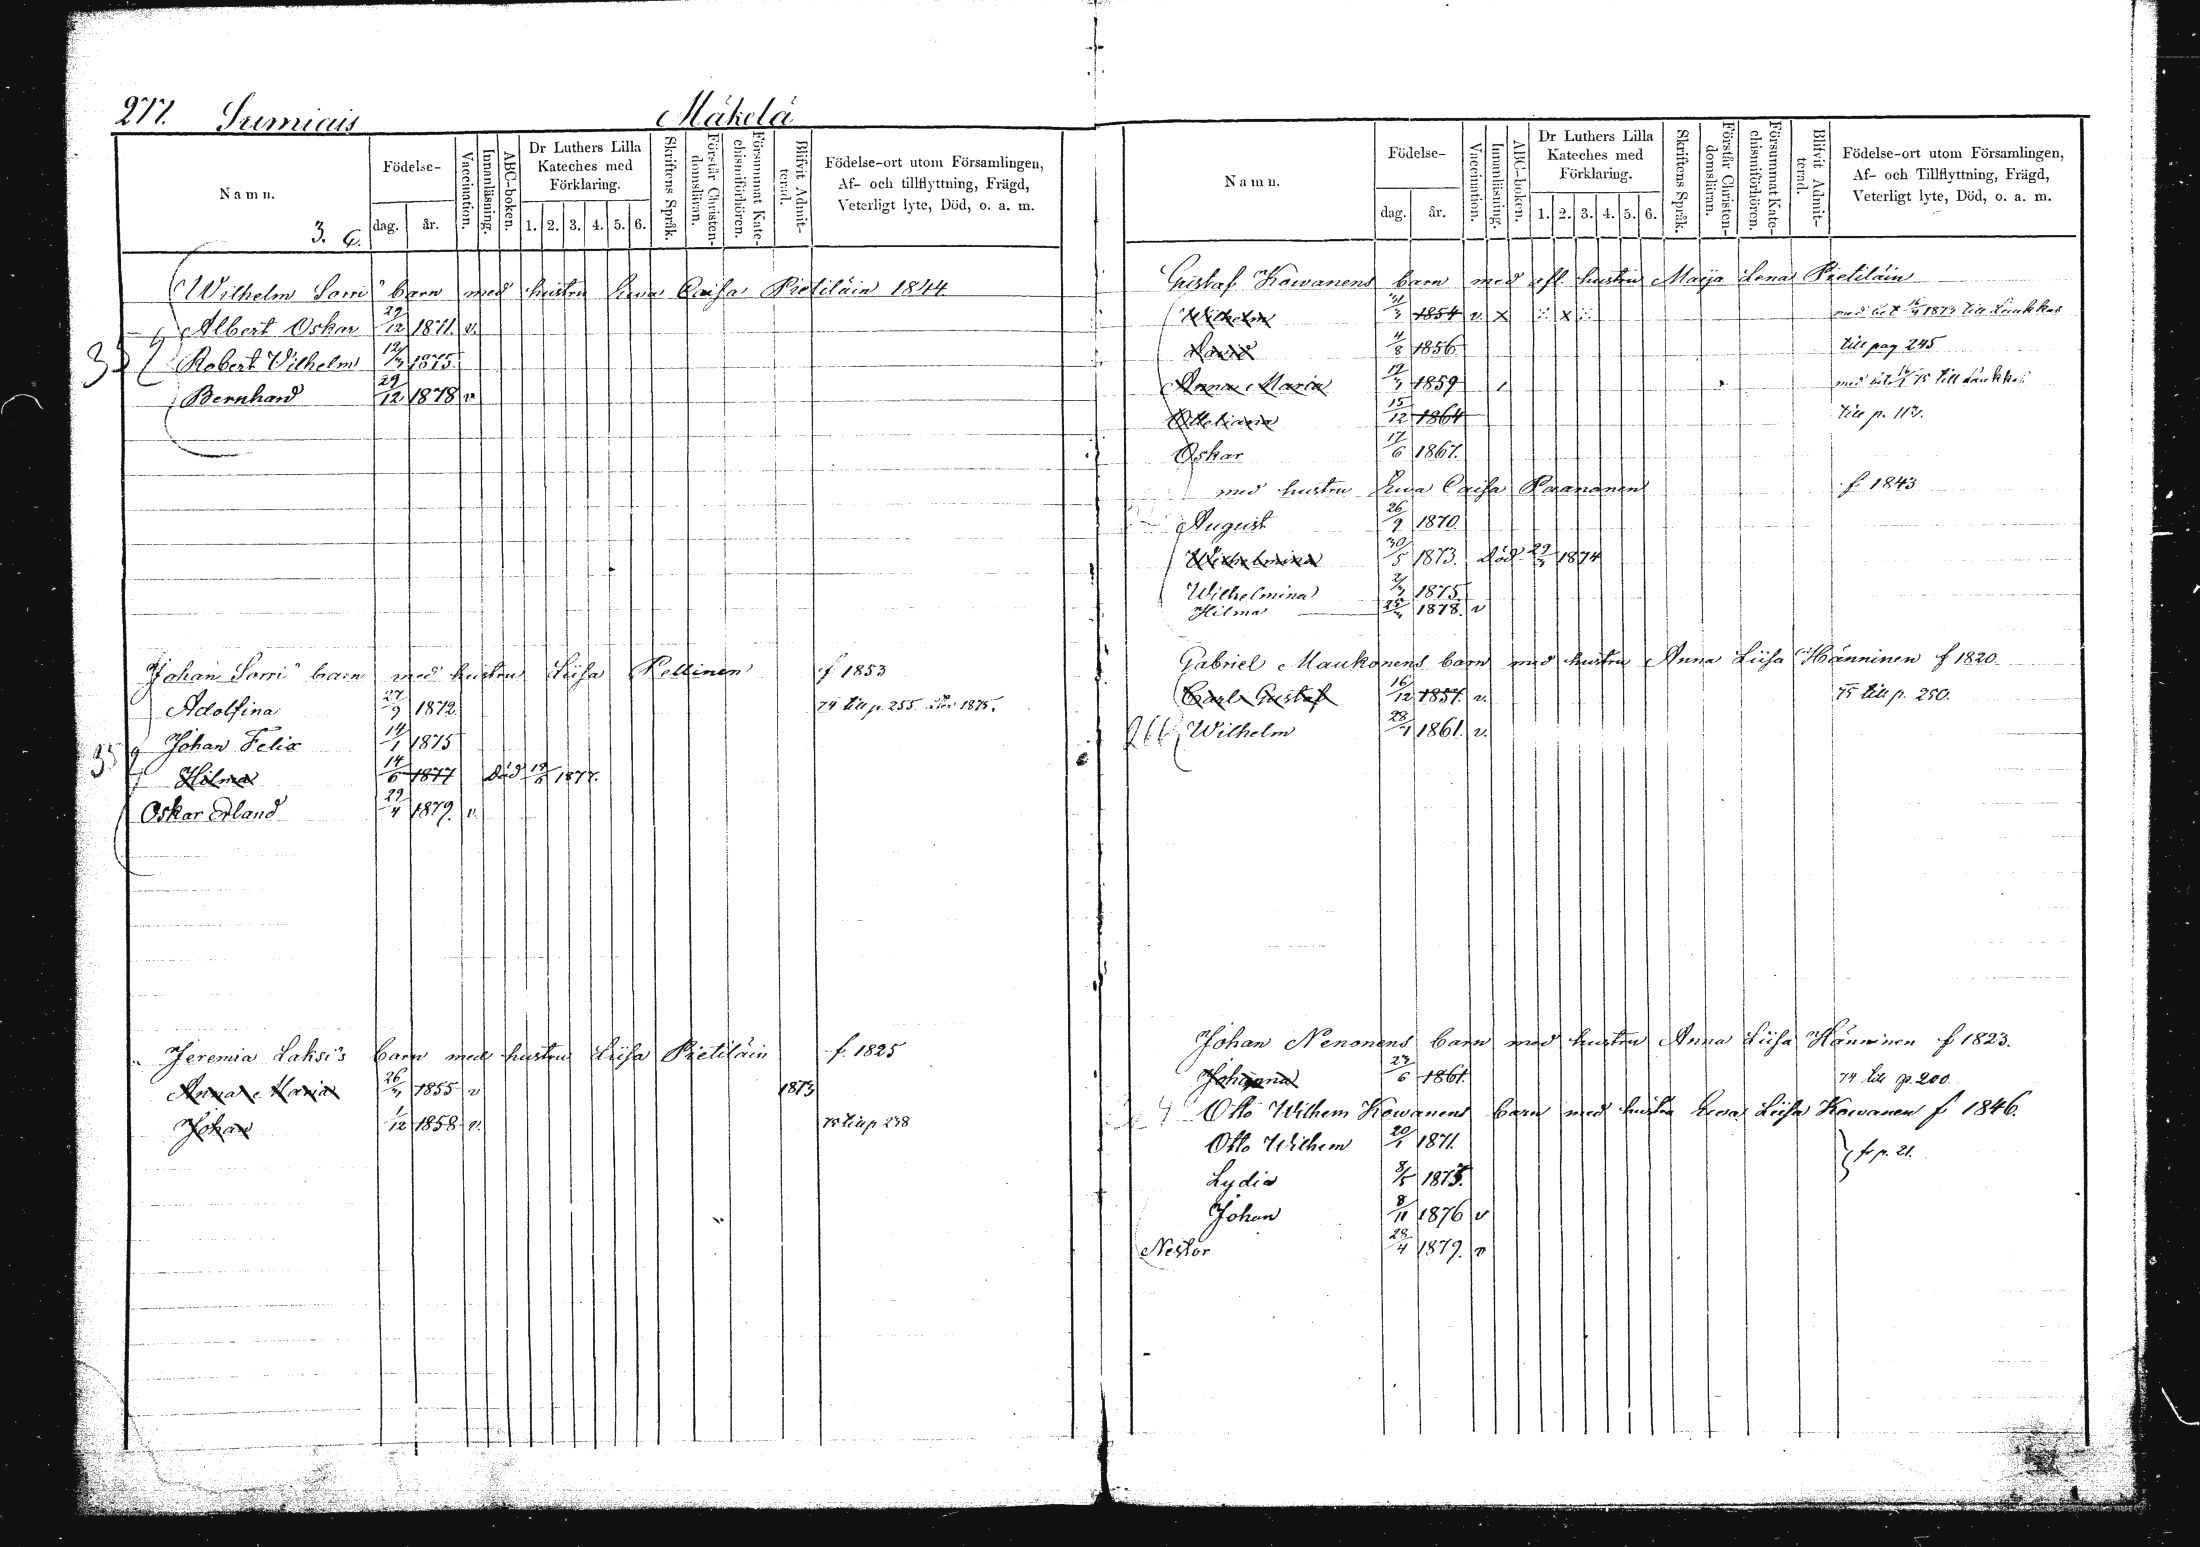 277. Sumiais Mäkelä
Namn. Födelse- dag. år. Vaccination. Innanläsning. ABC-boken. Dr Luthers Lilla Kateches med Förklaring. 1. 2. 3. 4. 5. 6. Skriftens Språk. Förstår Christendomsläran. Försummat Katechismiförhören. Blifvit Admitterad. Födelse-ort utom Församlingen, Af- och tillflyttning, Frägd, Veterligt lyte, Död, o. a. m.
3.
Wilhelm Sorri" barn med hustru Ewa Caisa Pietiläin 1844.
Albert Oskar 29/12 1871. v.
Robert Vilhelm 1875.
Bernhard 29/12 1878 v
Johan Sorri" barn med hustru Liisa Pellinen f 1853
Adolfina 27/9 1872 74 till p. 255. 1875.
Johan Felix 14/1 1875
Hilma 14/6 1877 död 19/6 1877.
Oskar Erland 29/4 1879. v.
Jeremia Laksi's barn med hustru Liisa Pietiläin f. 1825
Anna Maria 1855 v 1873
Johan 1/12 1858 v. 75 till p 238
Namn. Födelse- dag. år. Vaccination. Innanläsning. ABC-boken. Dr Luthers Lilla Kateches med Förklaring. 1. 2. 3. 4. 5. 6. Skriftens Språk. Förstår Christendomsläran. Försummat Katechismiförhören. Blifvit Admitterad. Födelse-ort utom Församlingen, Af- och Tillflyttning, Frägd, Veterligt lyte, Död, o. a. m.
Gustaf Kowanens barn med afl. hustru Maija Lena Pietiläin
Wilhelm 1854 v. x x med bet 1873 till Laukkas
David 4/8 1856 till pag 245
Anna Maria 1859 med bet. 75 till Laukkas
Otteliana 15/12 1864 till p. 117.
Oskar 17/6 1867.
med hustru Ewa Caisa Paananen f 1843
August 26/9 1870.
Wilhelmina 30/5 1873. död 1874
Wilhelmina 1875.
Hilma 1878. v
Gabriel Maukonens barn med hustru Anna Liisa Hänninen f 1820
Carl Gustaf 16/12 1857. v. 75 till p. 250.
266 Wilhelm 1861. v.
Johan Nenonens barn med hustru Anna Liisa Hänninen f 1823.
Johanna 1861. 74 till p. 200.
Otto Wilhem Kowanens barn med hustru Ewa Liisa Kowanen f 1846.
Otto Wilhem 20/1 1871.
Lydia 1873. fr p. 21.
Johan 8/11 1876 v
Nestor 1879. v